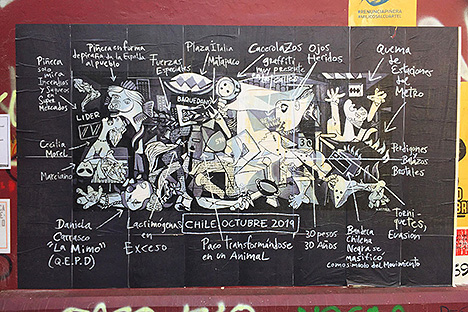 #RENUNCIAPIÑERA
#MILICOSALCUARTEL
Piñera
solo
mira
Incendios
y Saqueos
de
Super
Mercados
Piñera en forma
de piraña da la Espalda
al pueblo
Fuerzas
Especiales
Plaza Italia
Matapaco
Cacerolazos
graffiti
muy presente
Ojos
Heridos
Quema
de
Estaciones
de
Metro
LIDER
BAQUEDANO
30
Cecilia
Morel
Marciano
Perdigones
Balazos
Brutales
Daniela
Carrasco
"La Mimo"
(Q.E.P.D)
Lacrimógenas
en
Exceso
CHILE, OCTUBRE 2019
Paco transformándose
en un Animal
30 pesos
30 Años
Bandera
Chilena
Negra se
masificó
como símbolo del Movimiento
Torni
quetes,
Evasión